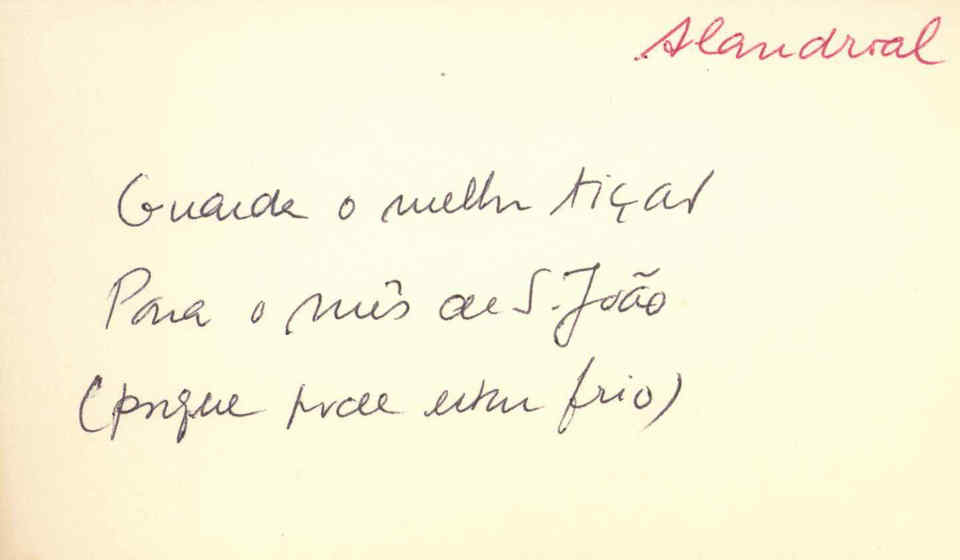 Alandroal
Guarda o melhor
Para o mês de S. João
(porque pode estar frio)